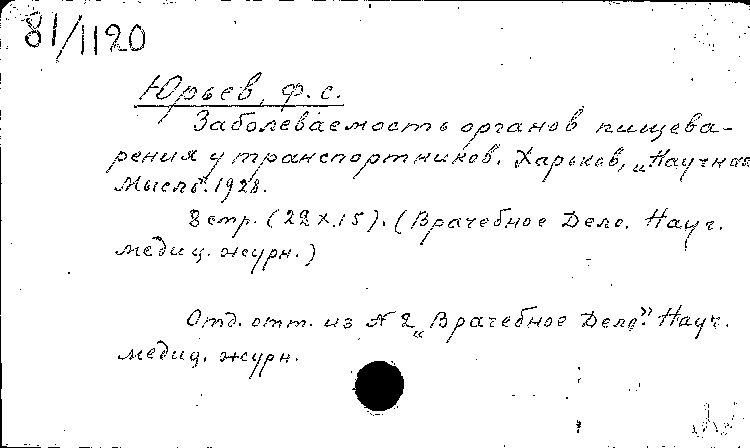 81/1120
Юрьев, Ф. С.
Заболеваемость органов пищева-
рения у транспортников. Харьков, „Научная
Мысль". 1928.
8 стр. (22 х. 15). (Врачебное Дело. Науч.
медиц. журн.)
Отд. отт. из № 2 „Врачебное Дело". Науч.
медиц. журн.